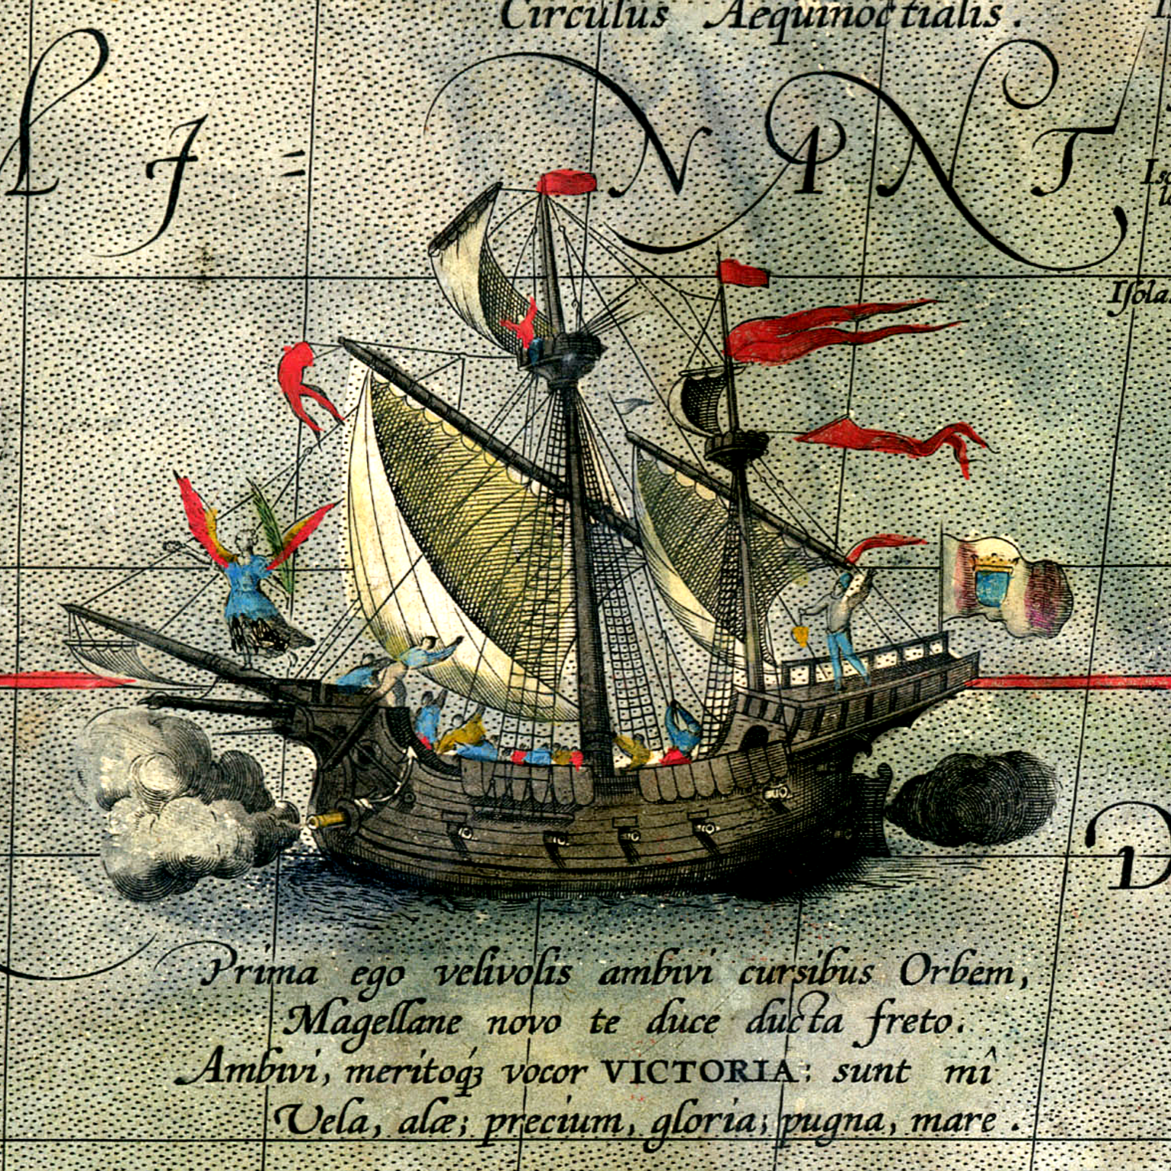 Circulus Aequinoctialis.
L I = N A N T
Isola
D
Prima ego velivolis ambivi cursibus Orbem,
Magellane novo te duce ducta freto.
Ambivi, meritoq́ꝫ vocor VICTORIA: sunt mî
Vela, alæ; precium, gloria; pugna, mare.